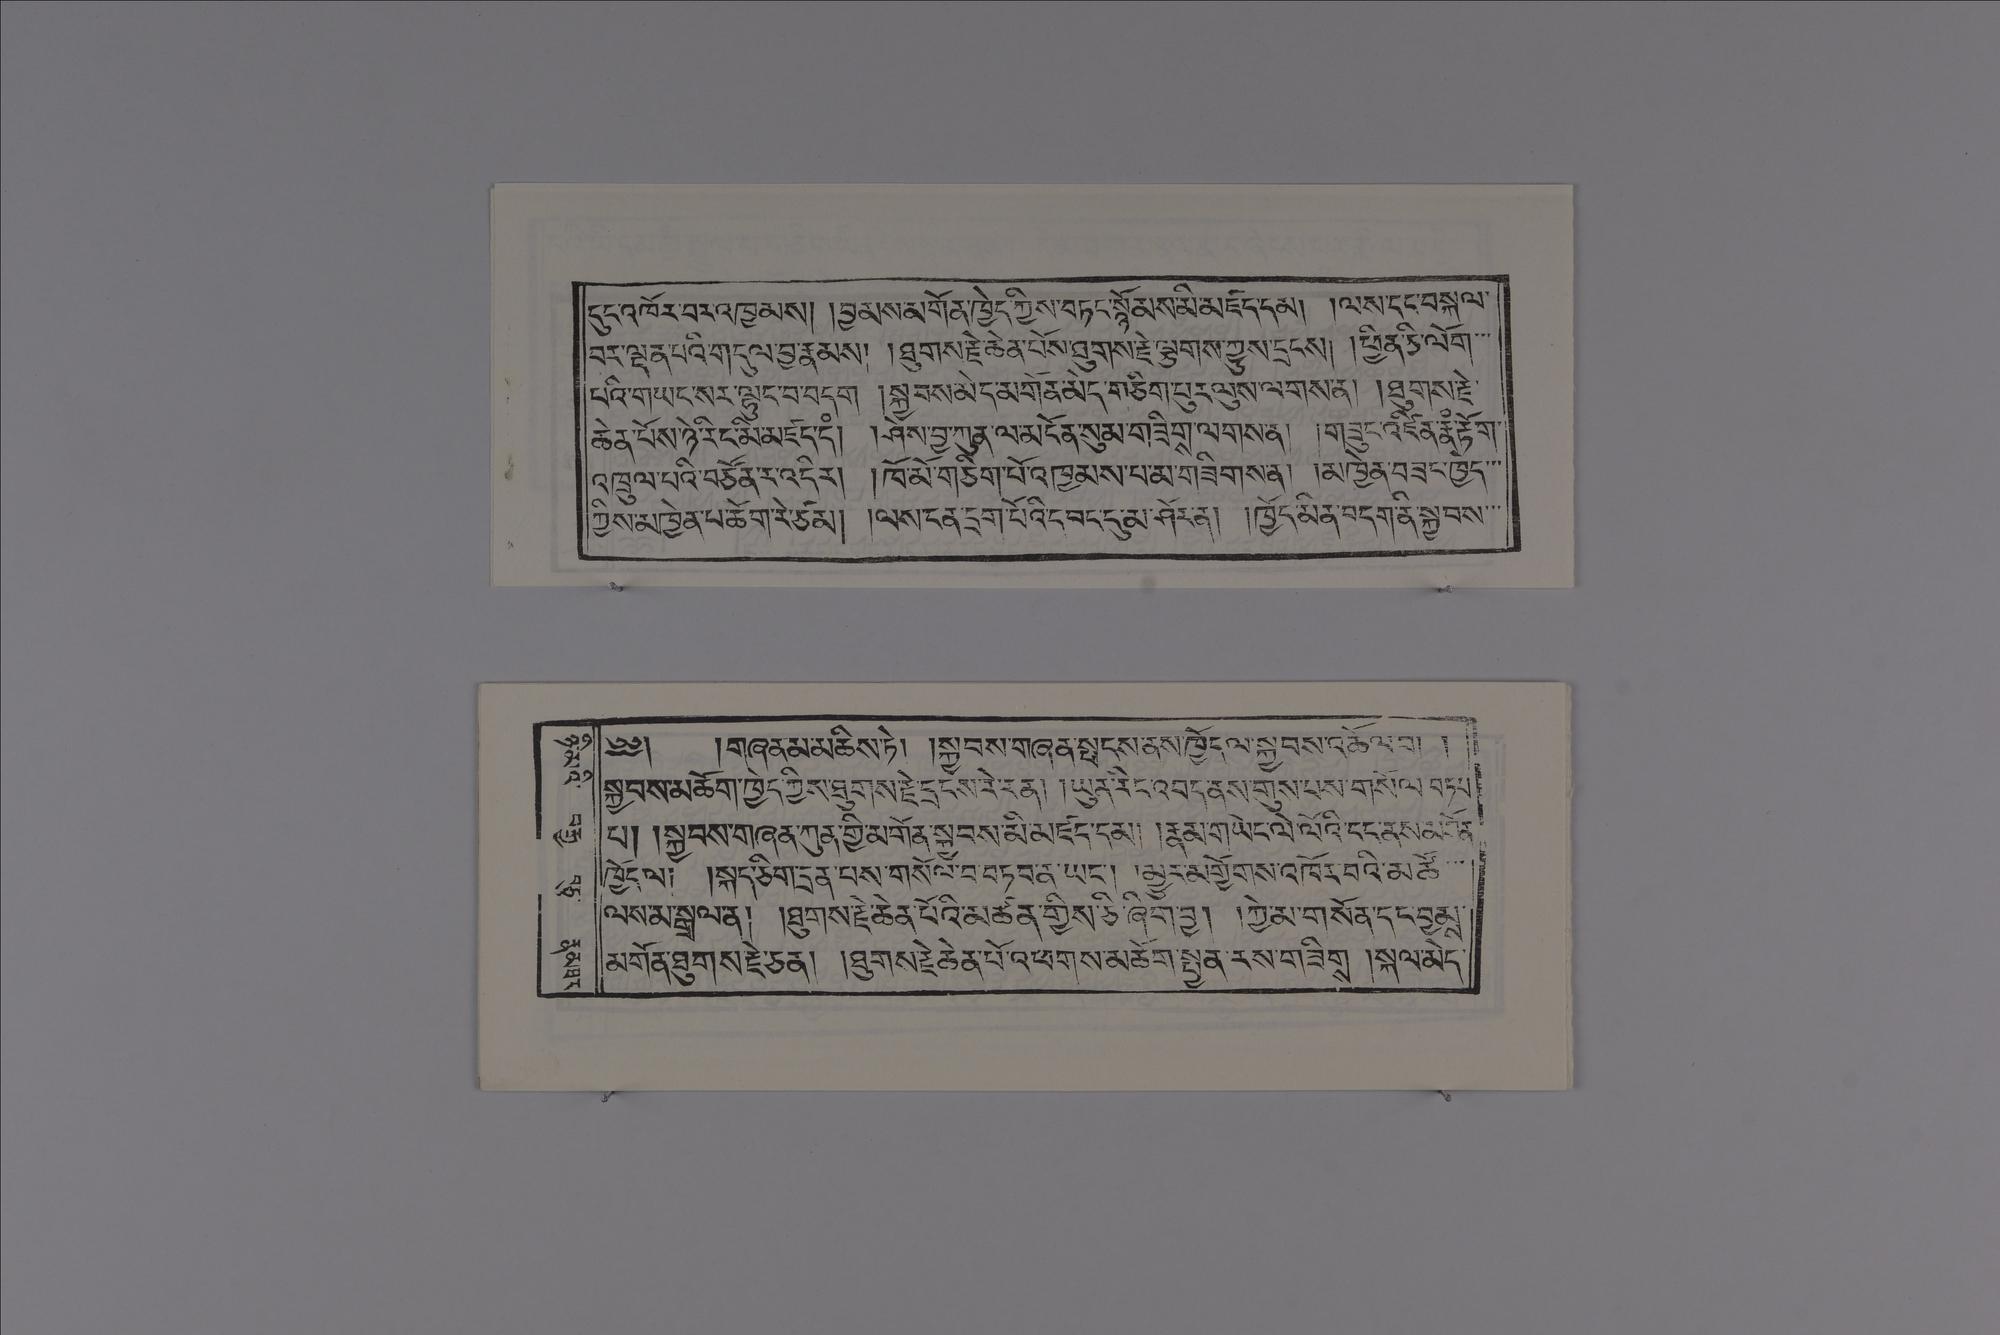 དུད་འཁོར་བར་འཁྱམས། །བྱམས་མགོན་ཁྱེད་ཀྱིས་བཏང་སྙོམས་མི་མཛད་དམ། །ལས་དང་བསྐལ་
བར་ལྡན་པའི་གདུལ་བྱ་རྣམས། །ཐུགས་རྗེ་ཆེན་པོས་ཐུགས་རྗེ་ལྕུགས་ཀྱུས་དྲངས། །ཕྱིན་ཅི་ལོག་
པའི་གཡང་སར་ལྷུང་བ་བདག །སྐྱབས་མེད་མགོན་མེད་གཅིག་པུར་ལུས་ལགས་ན། །ཐུགས་རྗེ་
ཆེན་པོས་ཉེ་རིང་མི་མཛད་དཾ། །ཤེས་བྱ་ཀུན་ལ་མདོན་སུམ་གཟིགྶ་ལགས་ན། །གཟུང་འཛིན་རྣཾ་རྟོག་
འཁྲུལ་པའི་བཙོན་ར་འདིར། །ཁོ་མོ་གཅིག་པོ་འཁྱམས་པ་མ་གཟིགས་ན། །མཁྱེན་བཟང་ཁྱེད་
ཀྱིས་མཁྱེན་པ་ཆོག་རེ་ཙམ། །ལས་ངན་དྲག་པོའི་ད་བད་དུ་མ་ཤོར་ན། །ཁྱོད་མིན་བདག་ནི་སྐྱབས་
༄༅། །གཞན་མ་མཆིས་ཏེ། །སྐྱབས་གཞན་སྤངས་ནས་ཁྱོད་ལ་སྐྱབས་འཚོལ་བ། །
སྐྱབས་མཆོག་ཁྱེད་ཀྱིས་ཐུགས་རྗེ་དྲངས་རེ་རན། །ཡུན་རིང་འབད་ནས་གུས་པས་གསོལ་བཏབ
པ། །སྐྱབས་གཞན་ཀུན་གྱི་མགོན་སྐྱབས་མི་མཛད་དམ། །རྣམ་གཡེང་ལེ་ལོའི་ངང་ནས་མགོན
ཁྱོད་ལ། །སྐད་ཅིག་དྲན་པས་གསོལ་བ་བཏབ་ན་ཡང་། །མྱུར་མགྱོགས་འཁོར་བའི་མཚོ་
ལས་མ་སྒྲལ་ན། །ཐུགས་རྗེ་ཆེན་པོའི་མཚན་གྱིས་ཅི་ཞིག་བྱ། །ཀྱེ་མ་གསོན་དང་བྱམྶ་
མགོན་ཐུགས་རྗེ་ཅན། །ཐུགས་རྗེ་ཆེན་པོ་འཕགས་མཆོག་སྤྱན་རས་གཟིགྶ །སྐལ་མེད་